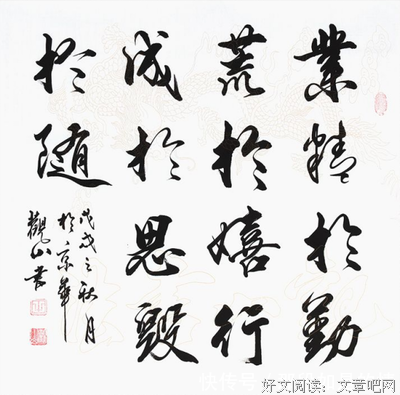 業精於勤
荒於嬉行
成於思毀
於隨
戊戌之秋月
於京華
觀山書
好文阅读：文章吧网